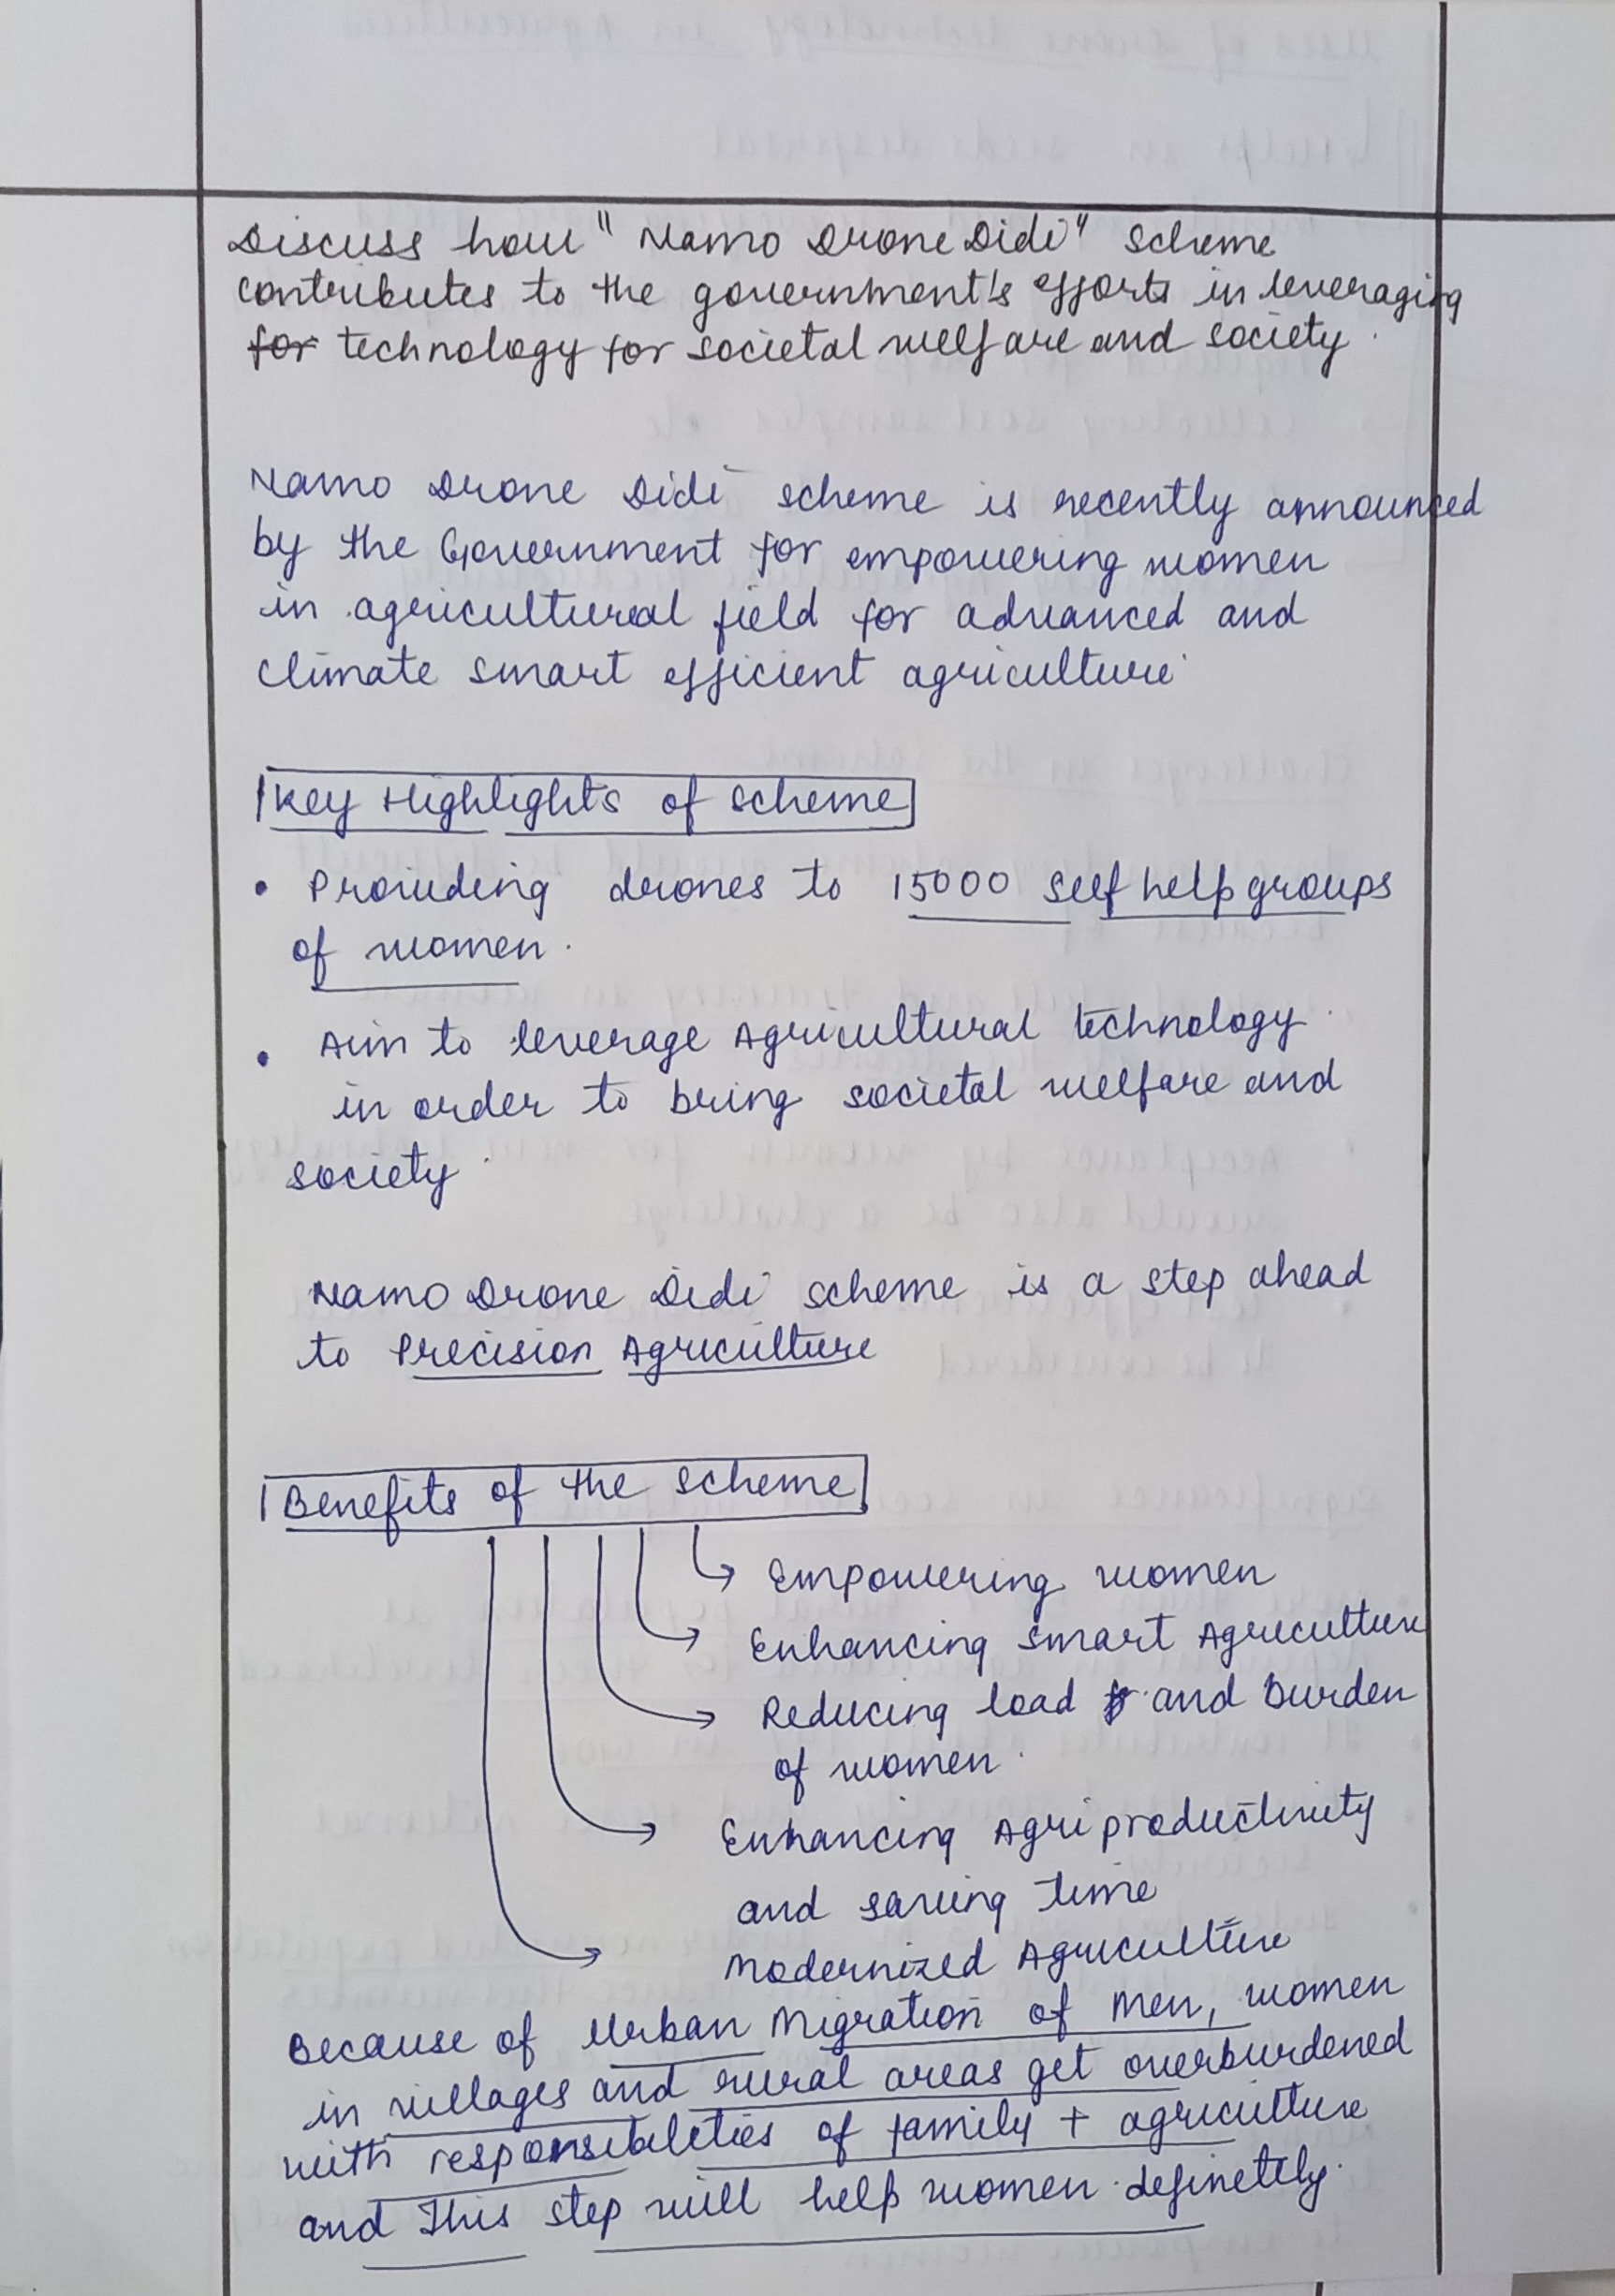 Discuss how "Namo Drone Didi" Scheme
contributes to the government's efforts in leveraging
for technology for societal welfare and society.
Namo Drone Didi scheme is recently announced
by the Government for empowering women
in agricultural field for advanced and
climate smart efficient agriculture.
Key Highlights of scheme
• Providing drones to 15000 self help groups
of women.
• Aim to leverage Agricultural technology
in order to bring societal welfare and
society.
Namo Drone Didi scheme is a step ahead
to Precision Agriculture
Benefits of the scheme
Empowering women
Enhancing Smart Agriculture
Reducing load and burden
of women.
Enhancing Agri productivity
and saving time
Modernized Agriculture
Because of Urban Migration of Men, women
in villages and rural areas get overburdened
with responsibilities of family + agriculture
and This step will help women definetely.